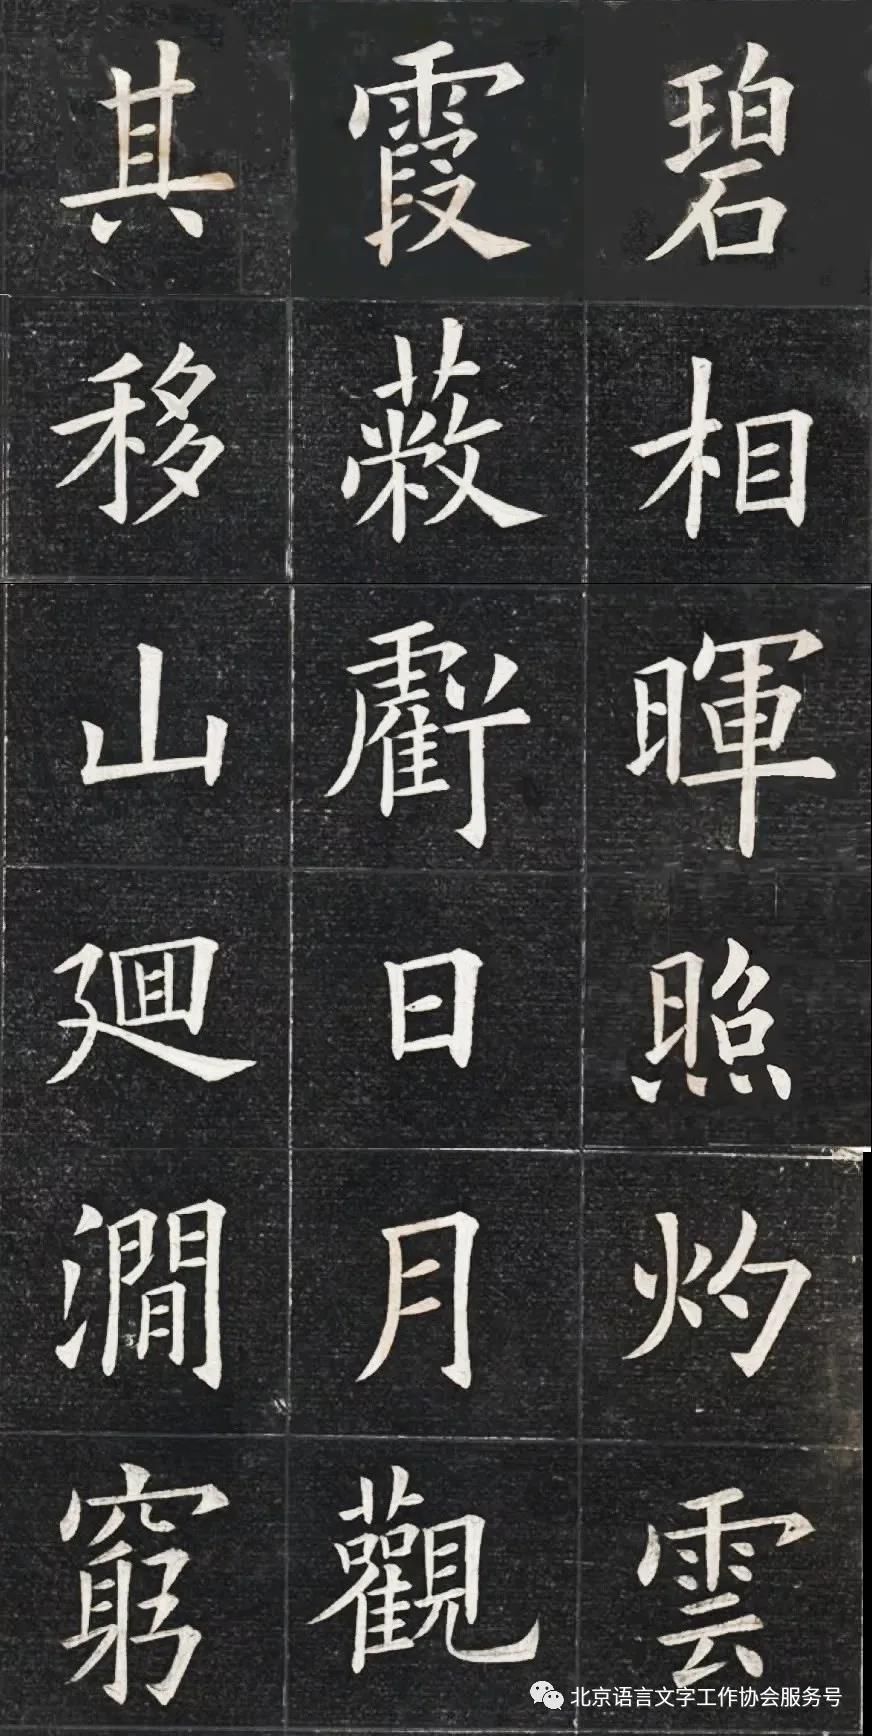 碧相暉照灼雲
霞蔽虧日月觀
其移山廻澗窮
北京语言文字工作协会服务号